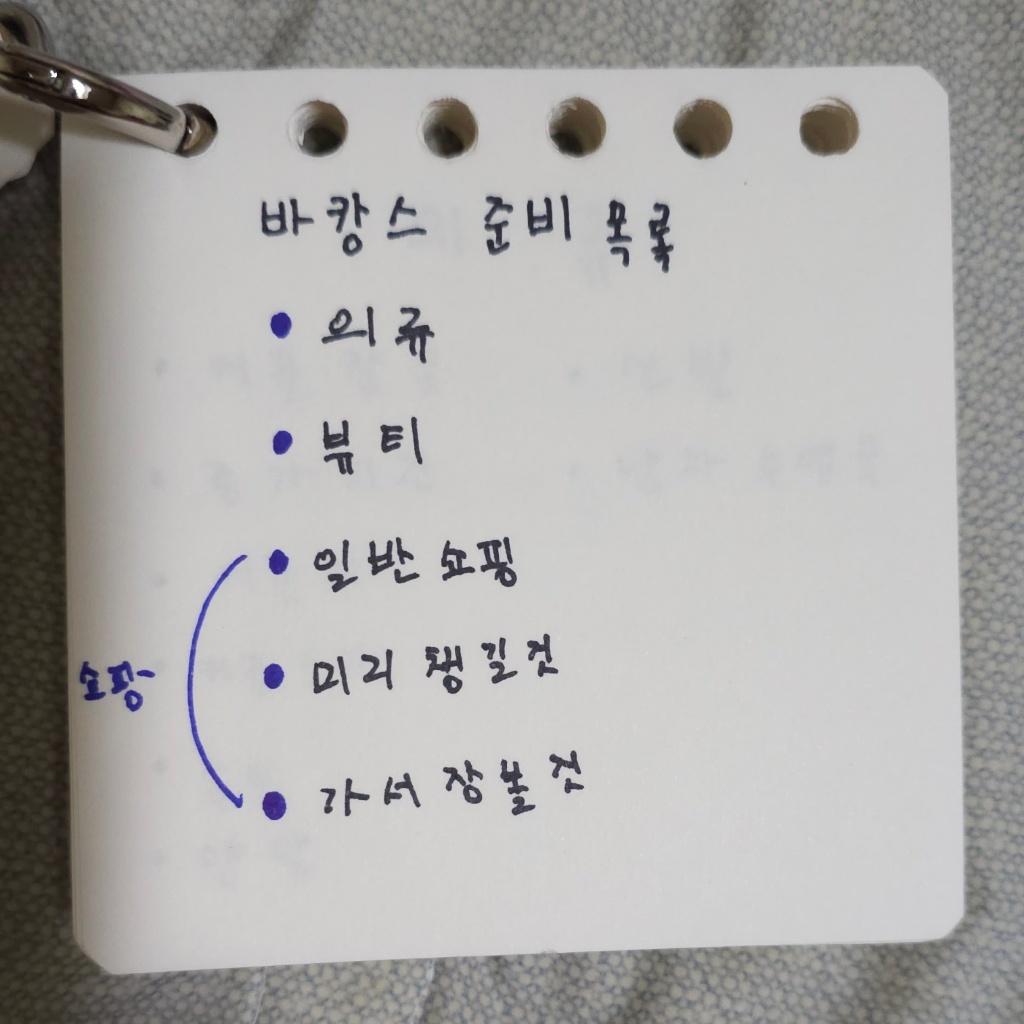 바캉스 준비 목록
• 의류
• 뷰티
• 일반 쇼핑
• 미리 챙길것
쇼핑
• 가서 장볼 것